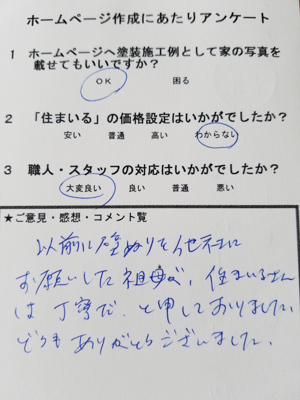 ホームページ作成にあたりアンケート
1 ホームページへ塗装施工例として家の写真を
載せてもいいですか?
OK 困る
2 「住まいる」の価格設定はいかがでしたか?
安い 普通 高い わからない
3 職人・スタッフの対応はいかがでしたか?
大変良い 良い 普通 悪い
★ご意見・感想・コメント覧
以前に壁ぬりを他社に
お願いした祖母が、住まいるさん
は丁寧だ。と申しておりました。
どうもありがとうございました。